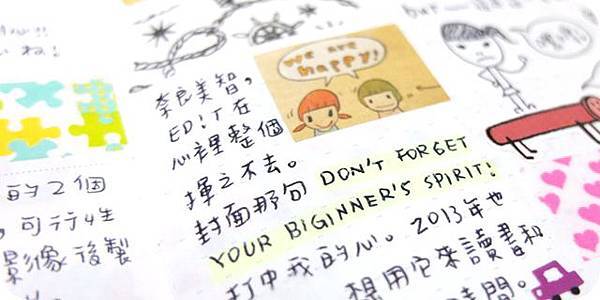 心!!
ね!
but
We are
happy!
奈良美智，
ED!T在
心裡整個
揮之不去。
封面那句 DON'T FORGET
YOUR BIGINNER'S SPIRIT!
打中我的心。2013年也
想用它來讀書和
時間。
的2個
，可行性
影像後製